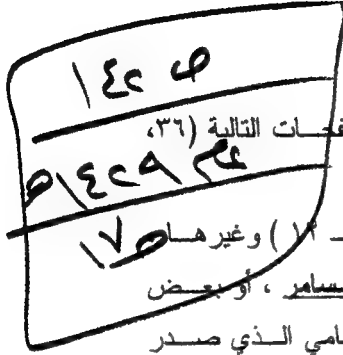 ص ١٤٢
ـفحـات التالية (٣٦،
عام ١٤٢٩هـ
ـ ١٣ ) وغيرهـا
ص ١٧
ـسامر ، أو بعـض
ـامي الـذي صـدر